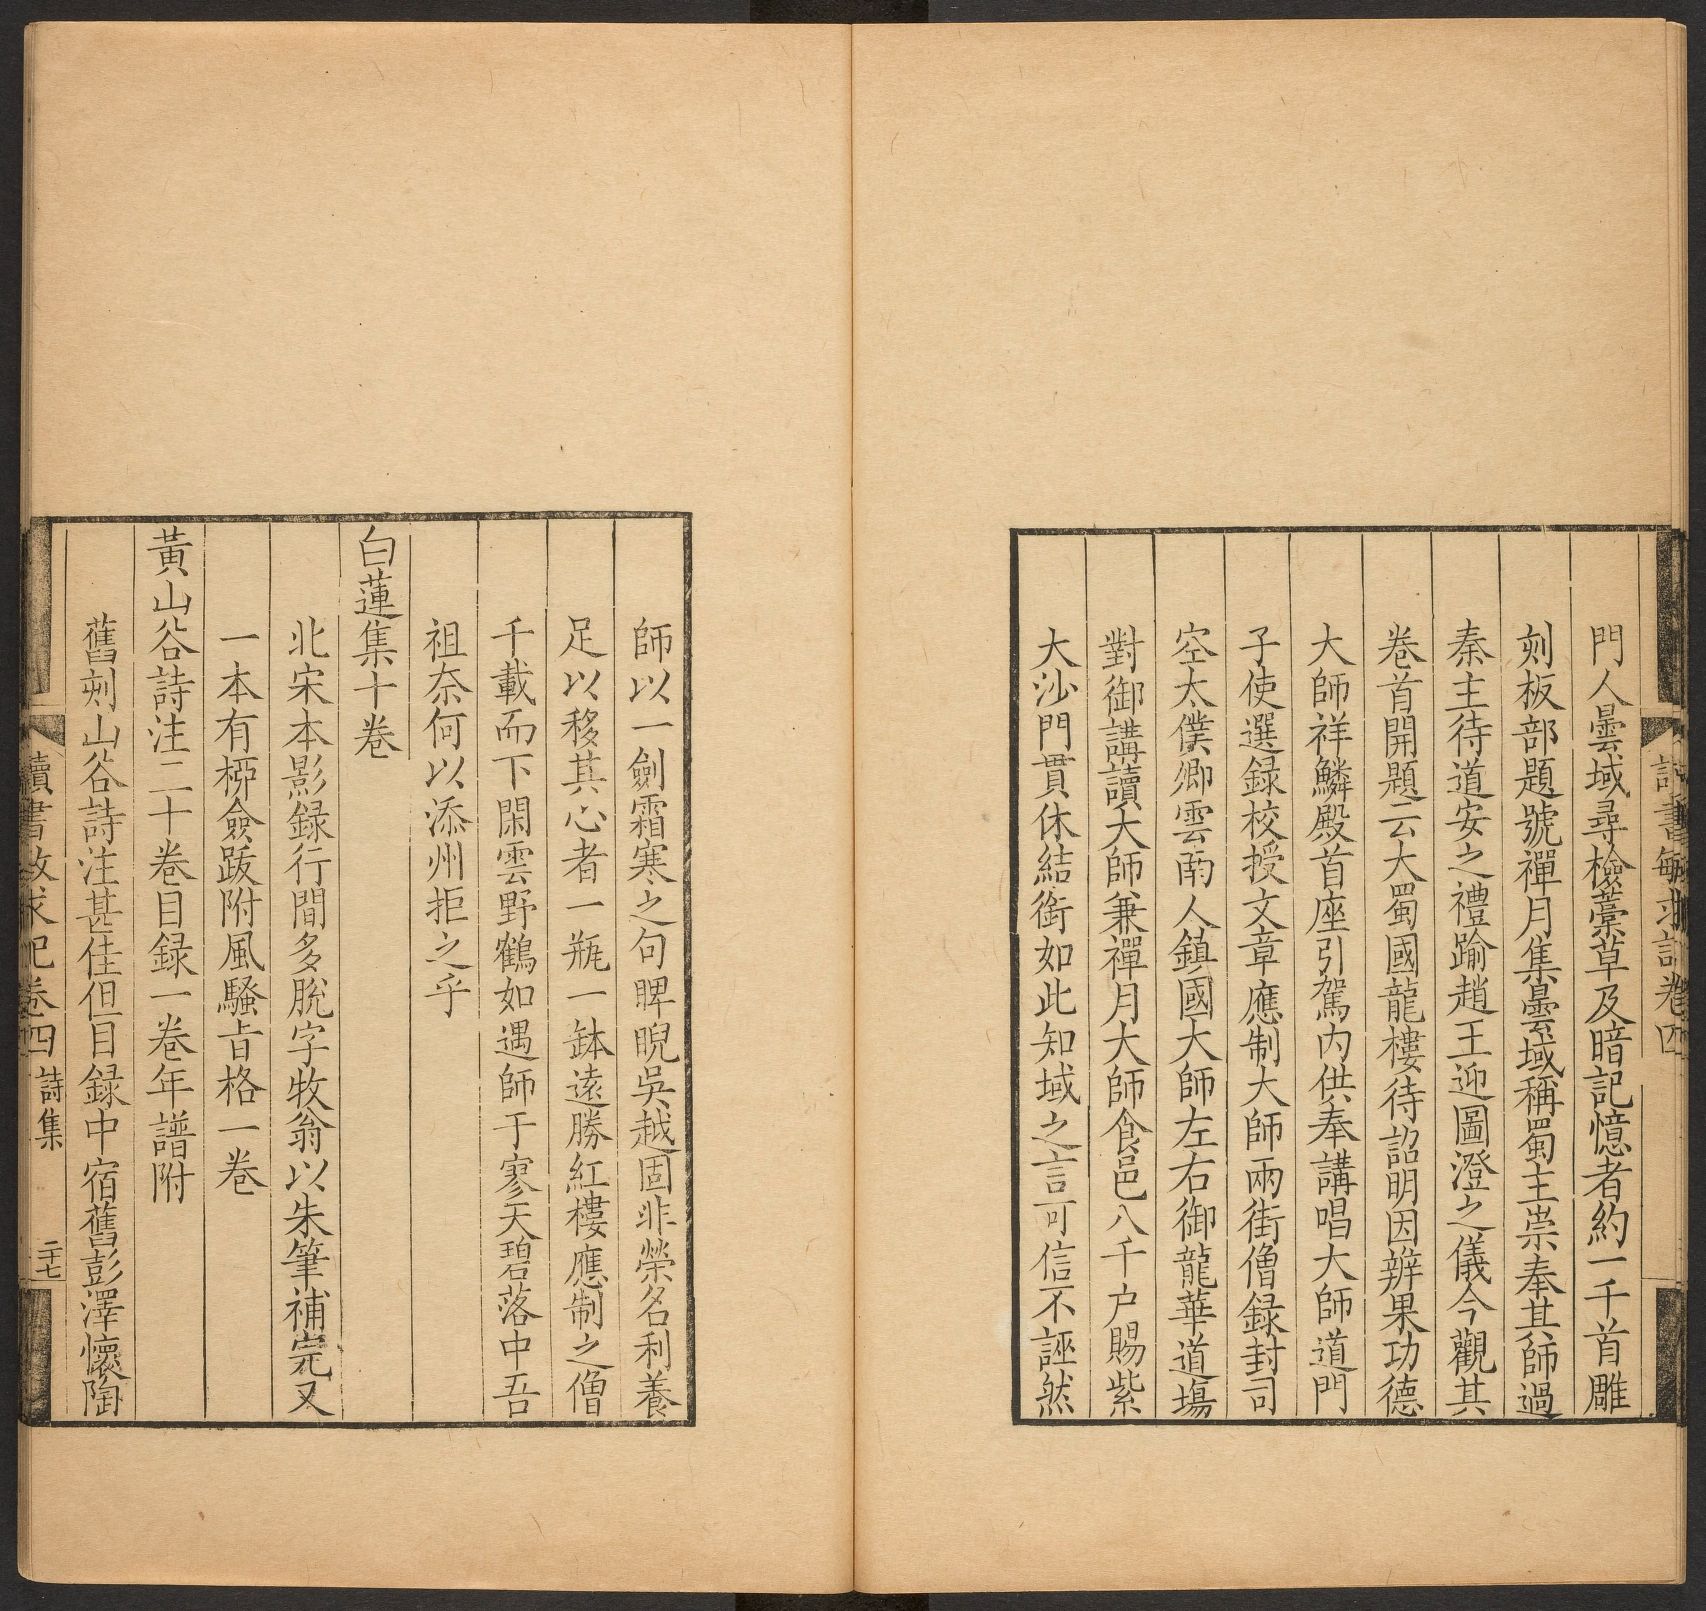 門人曇域尋檢藁草及暗記憶者約一千首雕
刻板部題號禪月集曇域稱蜀主崇奉其師過
秦主待道安之禮踰趙王迎圖澄之儀今觀其
卷首開題云大蜀國龍樓待詔明因辨果功德
大師祥麟殿首座引駕内供奉講唱大師道門
子使選録校授文章應制大師兩街僧録封司
空太僕卿雲南八鎮國大師左右御龍華道場
對御講讀大師兼禪月大師食邑八千户賜紫
大沙門貫休結銜如此知域之言可信不誣然
師以一劍霜寒之句睥睨吳越固非榮名利養
足以移其心者一瓶一鉢遠勝紅樓應制之僧
千載而下閑雲野鶴如遇師于寥天碧落中吾
祖奈何以添州拒之乎
白蓮集十卷
北宋本影録行間多脫字牧翁以朱筆補完又
一本有栁僉跋附風騷㫖格一卷
黃山谷詩注二十卷目録一卷年譜附
舊刻山谷詩注甚佳但目録中宿舊彭澤懷陶
讀書敏求記卷四 詩集 二十七